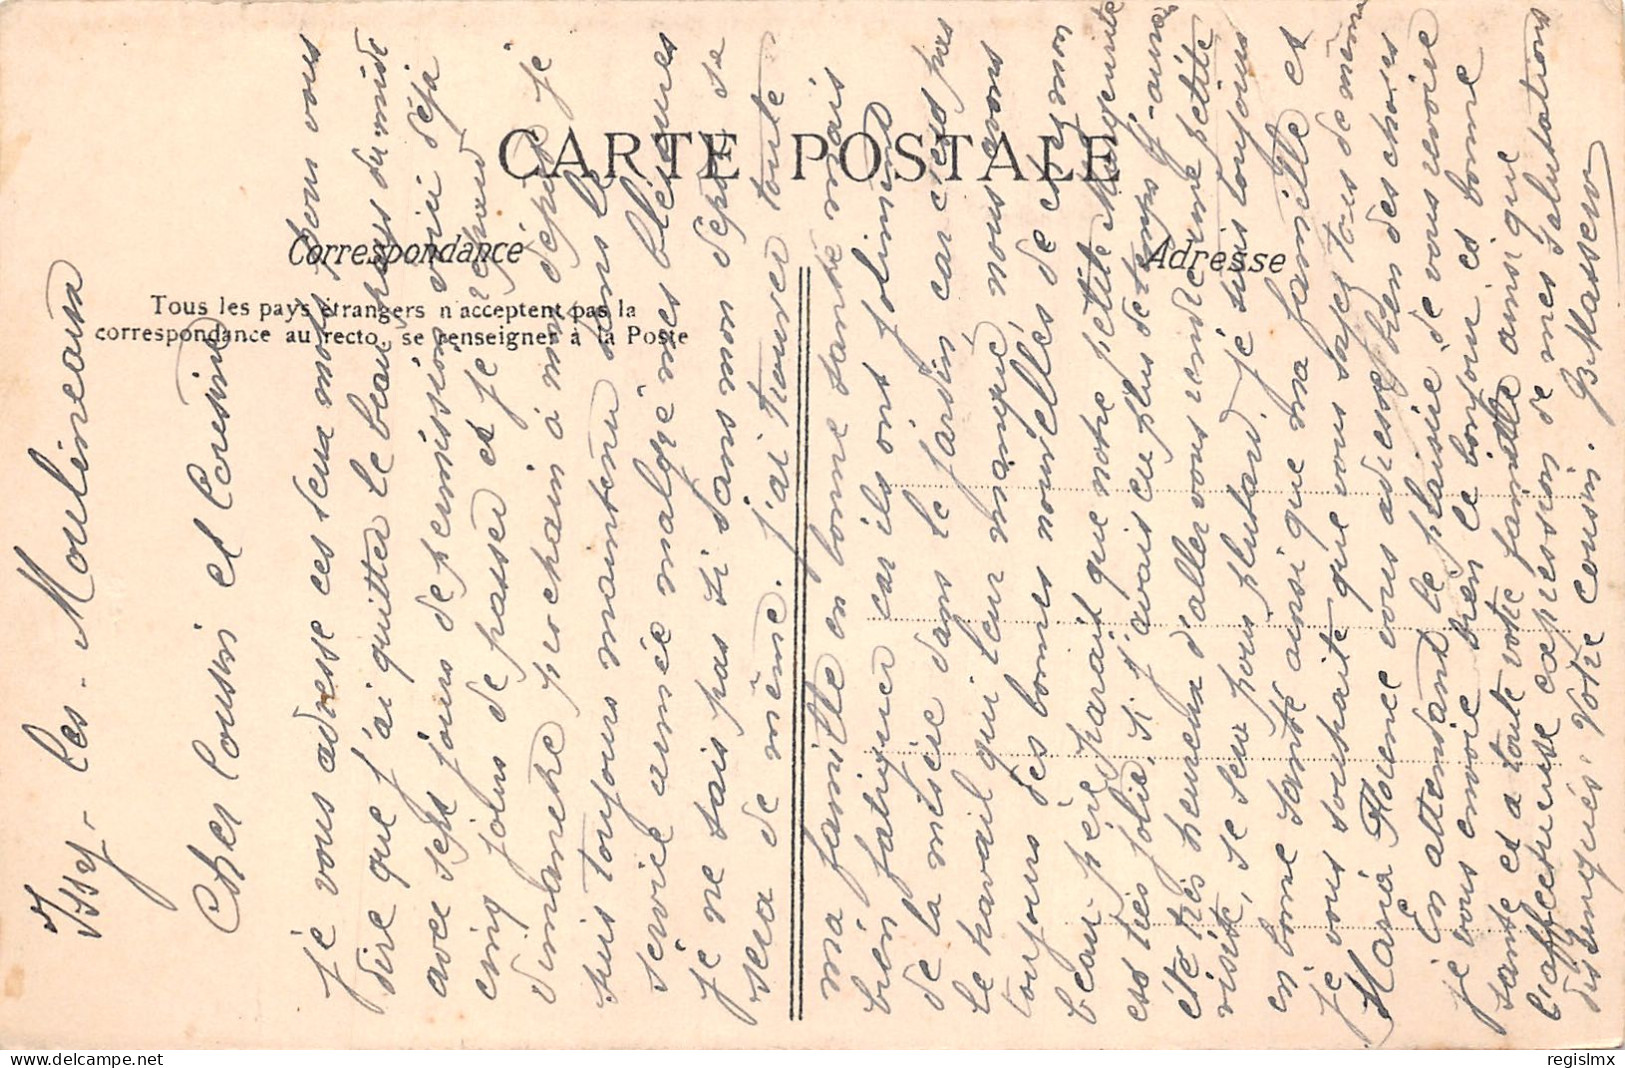 CARTE POSTALE
Correspondance
Adresse
Tous les pays étrangers n'acceptent pas la
correspondance au recto, se renseigner à la Poste
Issy-les-Moulineaux
Cher Cousin et Cousine
Je vous adresse ces deux mots pour vous
dire que j'ai quitter le beau pays du midi
avec sept jours de permission voici déjà
cinq jours de passer et je repard
dimanche prochain à mon dépôt je
suis toujours maintenu dans le
service armée malgré mes blessures
je ne sais pas si dans mon dépôt se
sera de même. j'ai trouver toute
ma famille en bonne santé mais
bien fatiguer car ils ont
de la misère dans le jardin car c'est pas
le travail qui leur manque, nous avons
toujours des bonnes nouvelles de chez mon
beau-père parait que notre petite Marguerite
est très jolie, si j'avais eu plus de temps j-aurai
été très heureux d'aller vous rendre une petite
visite, se sera pour plutard. je suis toujours
en bonne santé ainsi que ma famille et
je vous souhaite que vous soyez tous de même
Maria Florence vous adresse bien des choses
En attendant le plaisir de vous revoir
je vous envoie bien le bonjour et bonne
santé et a toute votre famille ainsi que
l'affectueuse expression de mes salutations
distinguées. Votre cousin. B. Masseron
regislmx